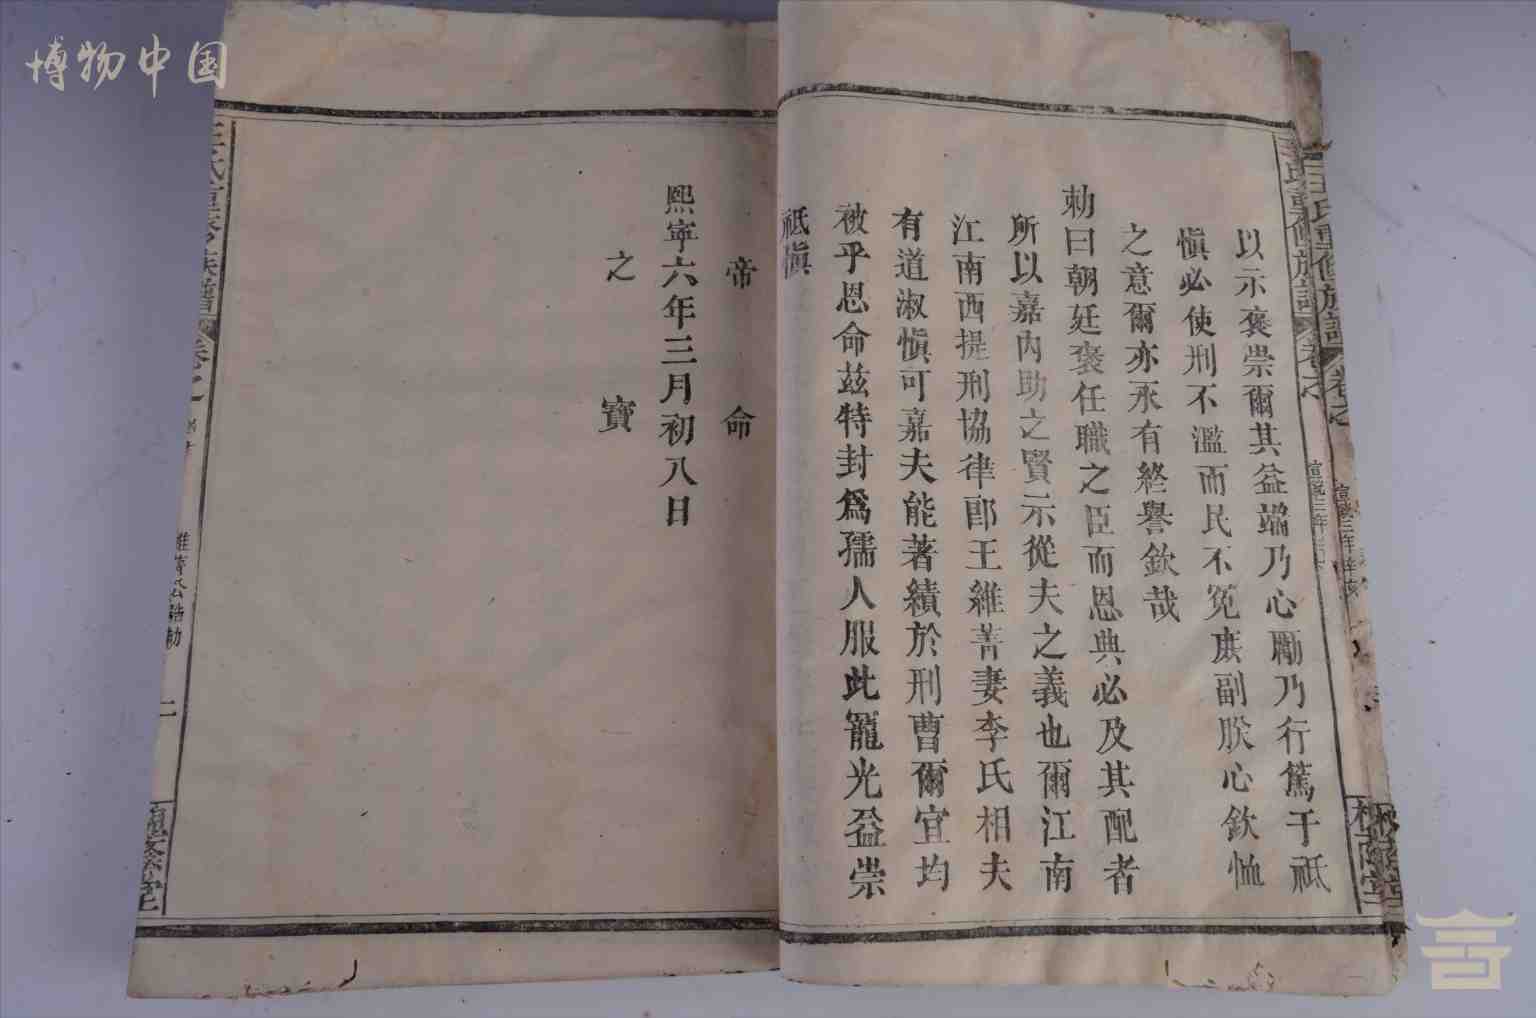 博物中国
以示褒崇爾其益端乃心勵乃行篤于祗
愼必使刑不濫而民不冤庶副朕心欽恤
之意爾亦永有終譽欽哉
勅曰朝廷褒任職之臣而恩典必及其配者
所以嘉內助之賢示從夫之義也爾江南
江南西提刑協律郎王維菩妻李氏相夫
有道淑愼可嘉夫能著績於刑曹爾宜均
被乎恩命茲特封爲孺人服此寵光益崇
祗愼
帝命
熙寧六年三月初八日
之寶
王氏重修族譜
卷之
誥勅
二